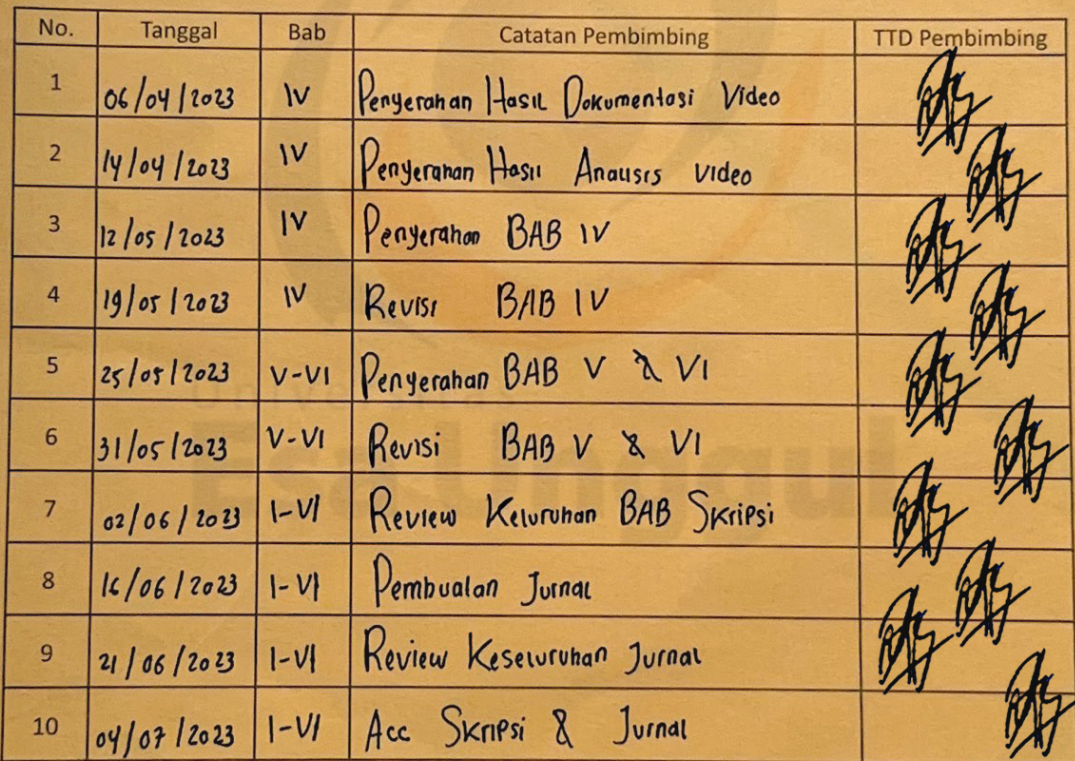 No. Tanggal Bab Catatan Pembimbing TTD Pembimbing
1 06/04/2023 IV Penyerahan Hasil Dokumentasi Video
2 14/04/2023 IV Penyerahan Hasil Analisis video
3 12/05/2023 IV Penyerahan BAB IV
4 19/05/2023 IV Revisi BAB IV
5 25/05/2023 V-VI Penyerahan BAB V & VI
Universitas
6 31/05/2023 V-VI Revisi BAB V & VI
Esa Unggul
7 02/06/2023 I-VI Review Keluruhan BAB Skripsi
8 16/06/2023 I-VI Pembuatan Jurnal
9 21/06/2023 I-VI Review Keseluruhan Jurnal
10 04/07/2023 I-VI Acc Skripsi & Jurnal